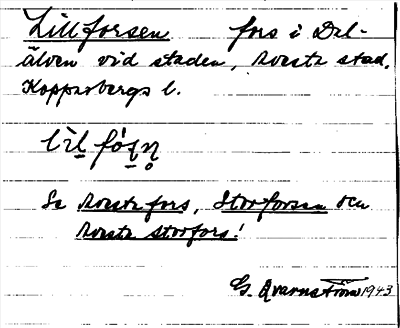 Lillforsen fors i Dal-
älven vid staden, Avesta stad,
Kopparbergs l.
Se Avesta fors, Storforsen och
Avesta storfors!
G. Qvarnström 1943